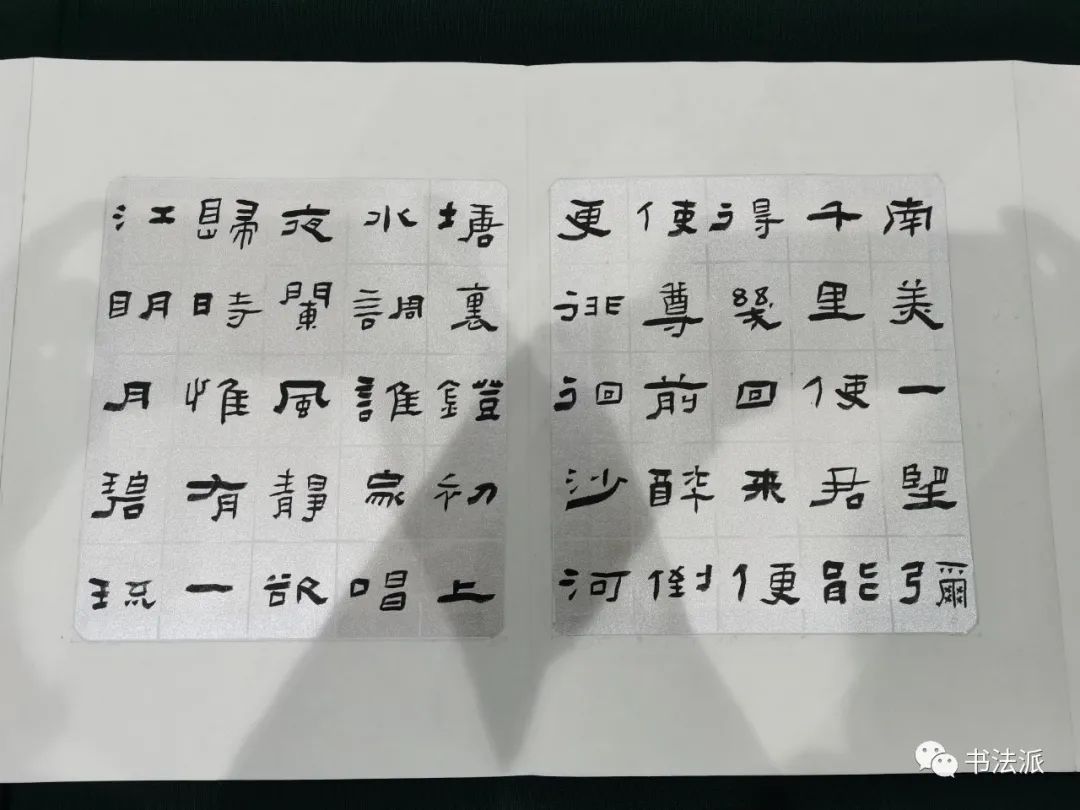 南美一望彌
千里使君能
得幾回來便
使尊前醉倒
更徘徊沙河
塘裏鐙初上
水調誰家唱
夜闌風靜欲
歸時惟有一
江明月碧琉
书法派